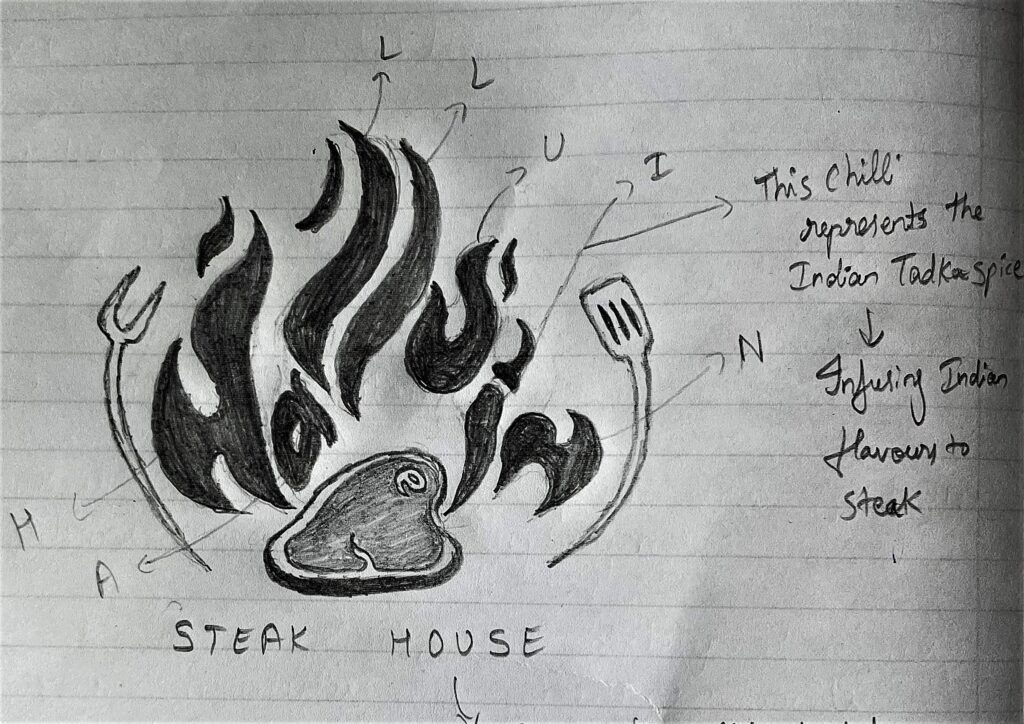 L
L
U
I
This Chilli
represents the
Indian Tadka spice
Infusing Indian
flavours to
steak
N
H
A
STEAK HOUSE